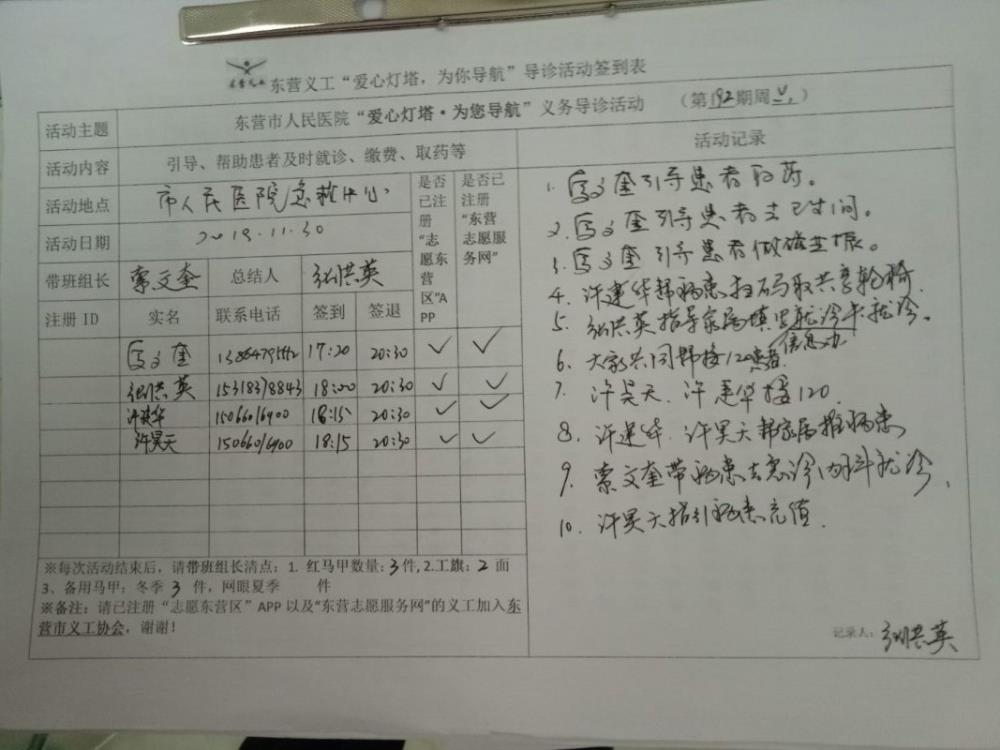 东营义工 东营义工“爱心灯塔，为你导航”导诊活动签到表
活动主题 东营市人民医院“爱心灯塔·为您导航”义务导诊活动 （第192期周）
活动内容 引导、帮助患者及时就诊、缴费、取药等
活动地点 市人民医院急救中心
活动日期 2019.11.30
是否已注册“志愿东营区”APP
是否已注册“东营志愿服务网”
带班组长 索文奎 总结人 张洪英
注册 ID 实名 联系电话 签到 签退
文奎 17:20 20:30 ✓ ✓
张洪英 15318378843 18:00 20:30 ✓ ✓
许建华 15066016900 18:15 20:30 ✓ ✓
许昊天 15066016900 18:15 20:30 ✓ ✓
※每次活动结束后，请带班组长清点：1. 红马甲数量：3件，2.工旗：2 面
3、备用马甲：冬季 3 件，网眼夏季 件
※备注：请已注册“志愿东营区”APP 以及“东营志愿服务网”的义工加入东
营市义工协会，谢谢！
活动记录
1. 文奎引导患者取药。
2. 文奎引导患者去卫生间。
3. 文奎引导患者做磁共振。
4. 许建华帮病患扫码取共享轮椅.
5. 张洪英指导家属填写就诊卡就诊。
信息
6. 大家共同帮接120患者
7. 许昊天.许建华接120.
8. 许建华.许昊天帮家属推病患
9. 索文奎带病患去急诊内科就诊.
10. 许昊天指引病患充值.
记录人：张洪英